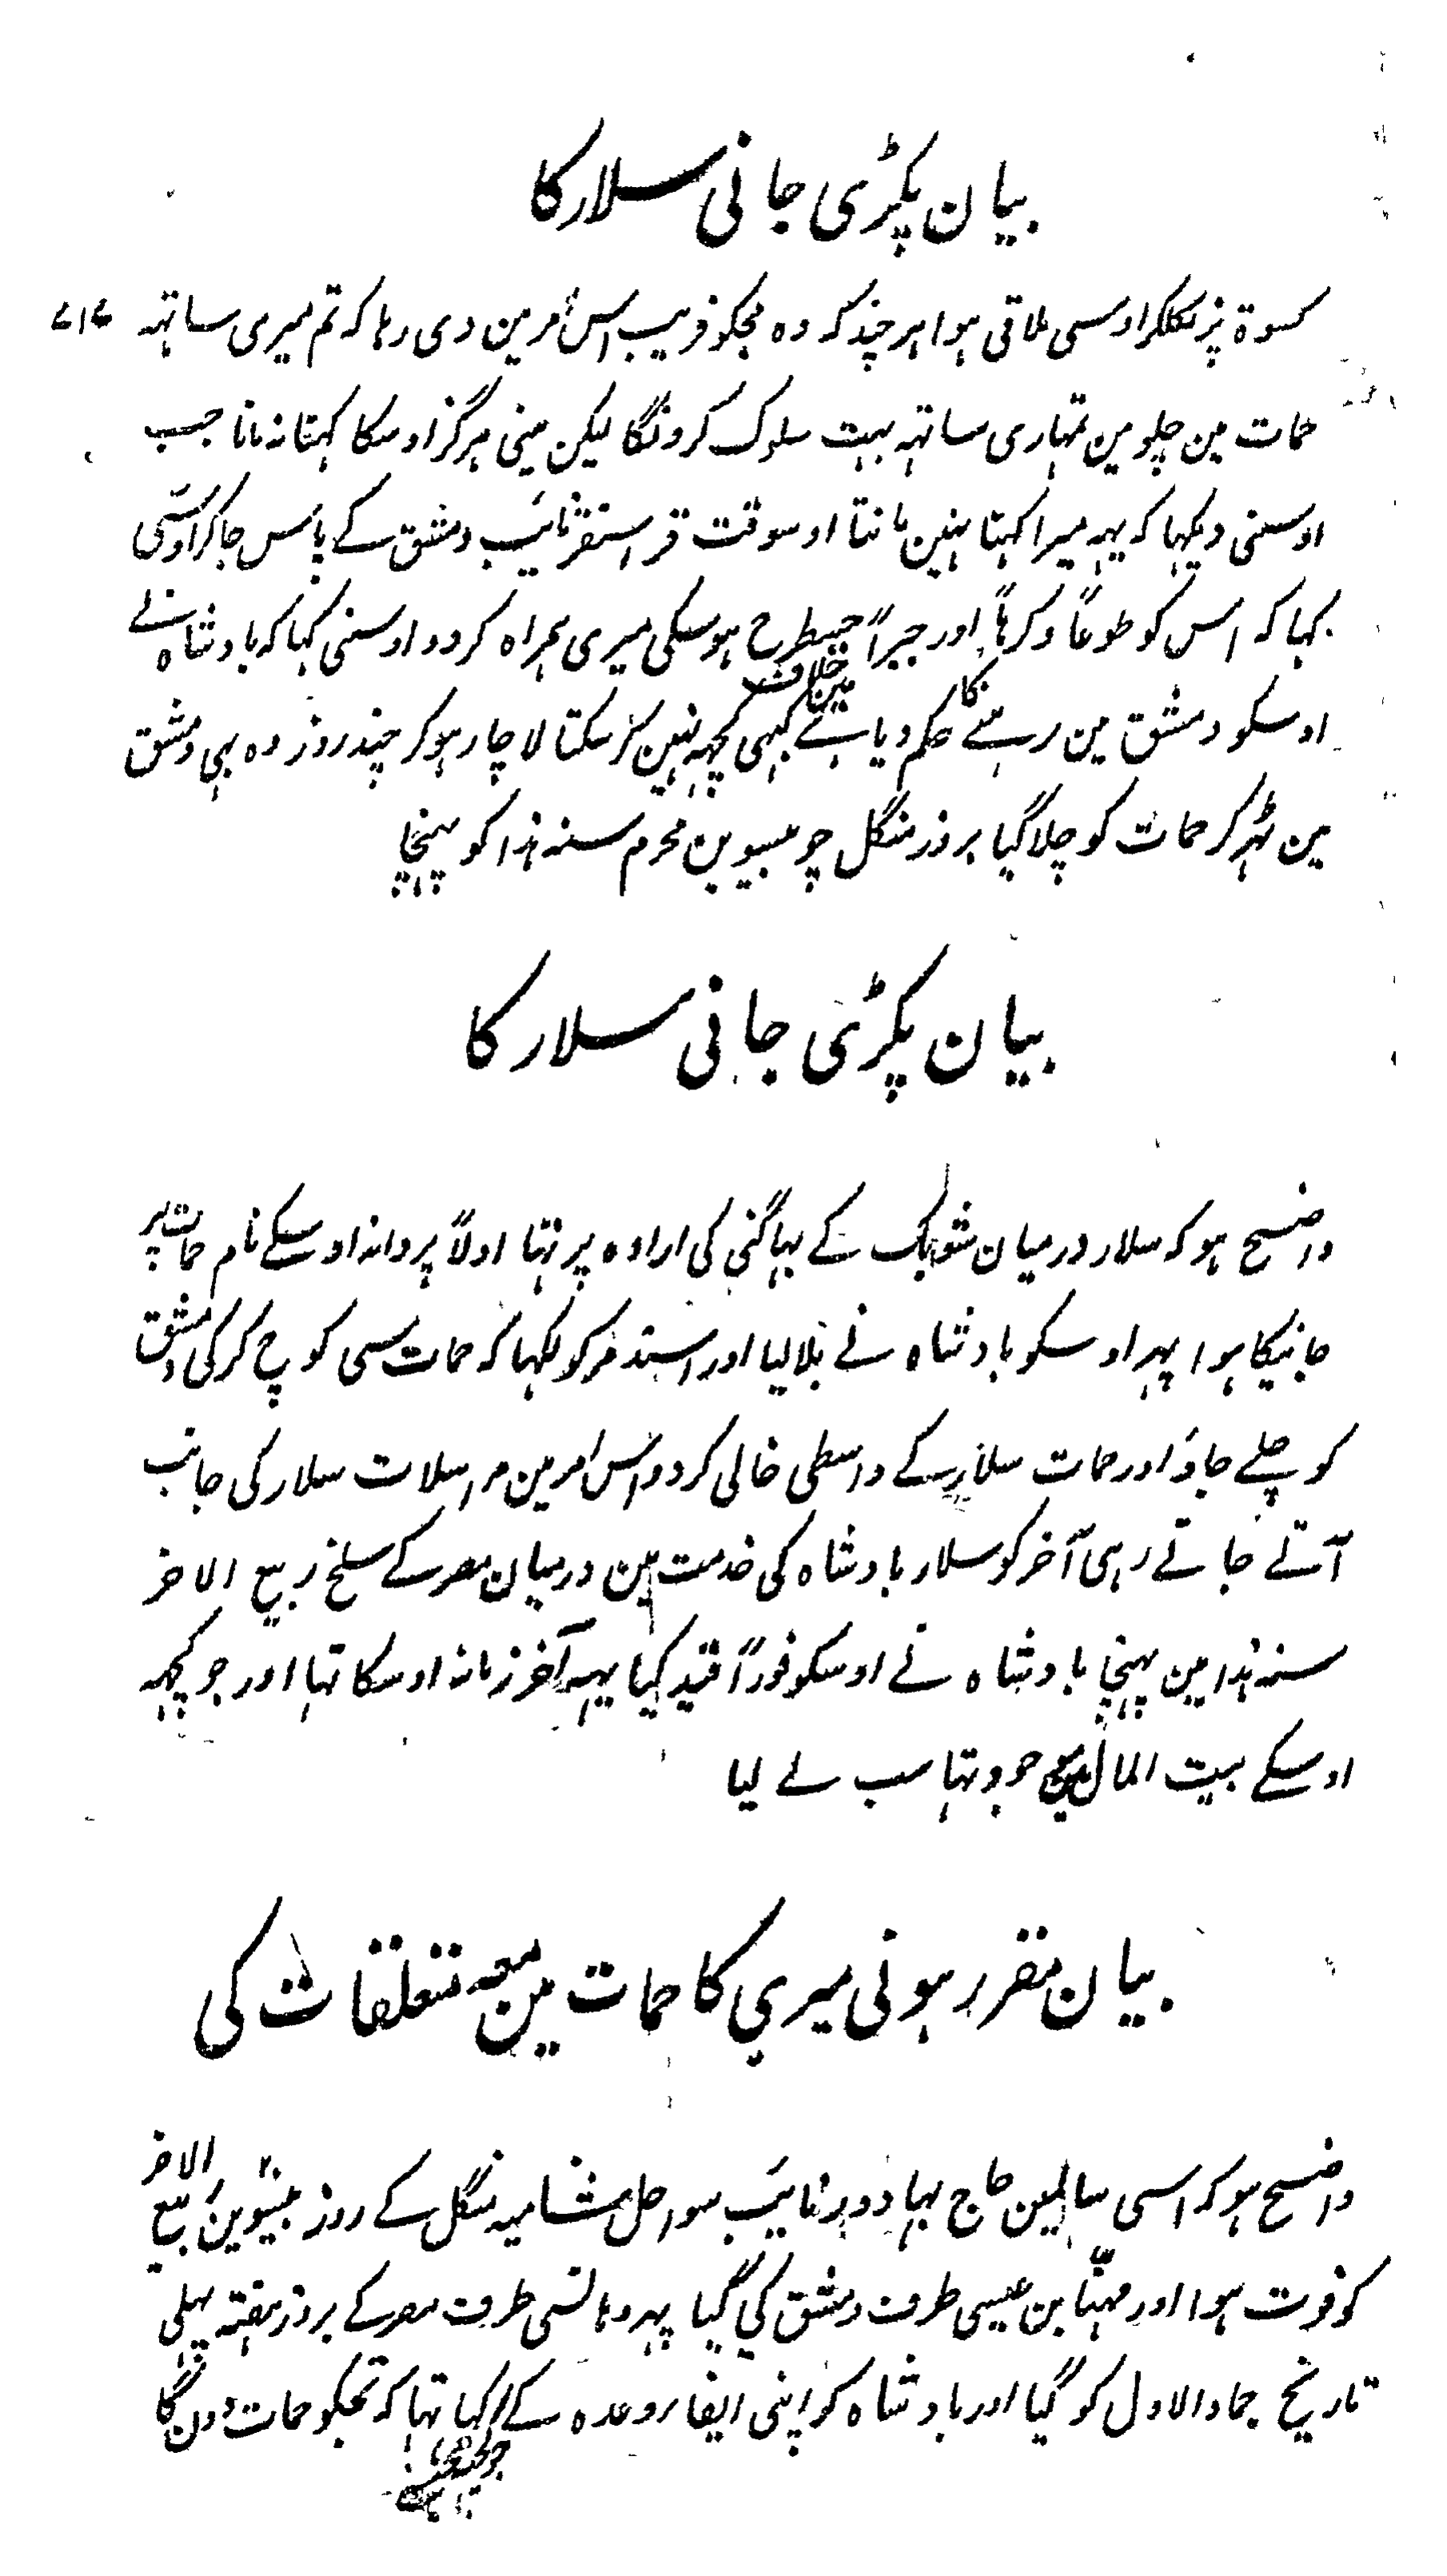 بیان پکڑی جانی سلار کا
کسوۃ پر نکلکر اوسی ملاقی ہوا ہر چند کہ وہ مجکو فریب اس امر مین دی رہا کہ تم میری ساتہہ
حمات مین چلو مین تمہاری ساتہہ بہت سلوک کرونگا لیکن مینی ہرگز اوسکا کہنا نہ مانا جب
اوسنی دیکہا کہ یہہ میرا کہنا نہین مانتا اوسوقت قراسنقر نائیب دمشق کے پاس جاکر اوسی
کہا کہ اس کو طوعاً و کرہاً اور جبراً جسطرح ہوسکی میری ہمراہ کردو اوسنی کہا کہ بادشاہ نے
اوسکو دمشق مین رہنے کا حکم دیا ہے مین خلاف کبہی کچہہ نہین کر سکتا لاچار ہوکر چند روز وہ بہی دمشق
مین ٹہر کر حمات کو چلا گیا بروز منگل چوبیسوین محرم سنہ ہذا کو پہنچا
بیان پکڑی جانی سلار کا
واضح ہو کہ سلار درمیان شوبک کے بہاگنی کی ارادہ پر تہا اولاً پروانہ اوسکے نام حمات پر
جانیکا ہوا پہر اوسکو بادشاہ نے بلا لیا اور اسندمر کو لکہا کہ حمات سی کوچ کرکی دمشق
کو چلے جاؤ اور حمات سلار کے واسطی خالی کردو اس امر مین مراسلات سلار کی جانب
آتے جاتے رہی آخر کو سلار بادشاہ کی خدمت مین درمیان مصر کے سلخ ربیع الاخر
سنہ ہذا مین پہنچا بادشاہ نے اوسکو فوراً قید کیا یہہ آخر زمانہ اوسکا تہا اور جو کچہہ
اوسکے بیت المال مین موجود تہا سب لے لیا
بیان مقرر ہونی میری کا حمات مین معہ متعلقات کی
واضح ہو کہ اسی سالمین حاج بہادور نائیب سواحل شامیہ منگل کے روز بیسوین ۲۰ ربیع الاخر
کو فوت ہوا اور مہنّا بن عیسی طرف دمشق کی گیا پہر وہانسی طرف مصر کے بروز ہفتہ پہلی
تاریخ جماد الاول کو گیا اور بادشاہ کو اپنی ایفاء وعدہ کے کہا تہا کہ تجکو حمات دون گا